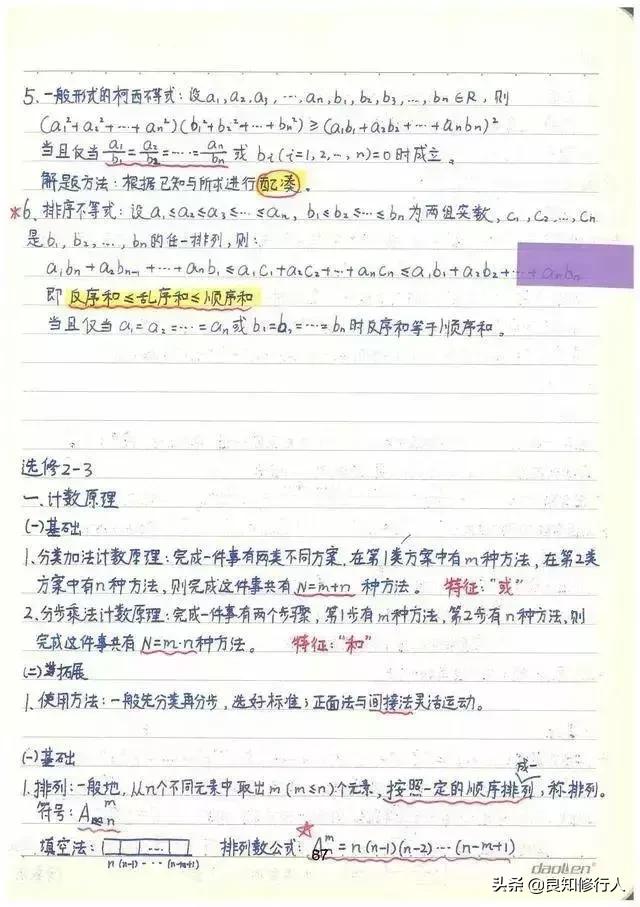 5、一般形式的柯西不等式：设a₁,a₂,a₃,…,aₙ,b₁,b₂,b₃,…,bₙ∈R，则
(a₁²+a₂²+…+aₙ²)(b₁²+b₂²+…+bₙ²)≥(a₁b₁+a₂b₂+…+aₙbₙ)²
当且仅当a₁/b₁=a₂/b₂=……=aₙ/bₙ或bᵢ(i=1,2,…,n)=0时成立。
解题方法：根据已知与所求进行配凑。
*6、排序不等式：设a₁≤a₂≤a₃≤…≤aₙ，b₁≤b₂≤…≤bₙ为两组实数，c₁,c₂…,cₙ
是b₁,b₂,…,bₙ的任一排列，则：
a₁bₙ+a₂bₙ₋₁+…+aₙb₁≤a₁c₁+a₂c₂+…+aₙcₙ≤a₁b₁+a₂b₂+…+aₙbₙ
即反序和≤乱序和≤顺序和
当且仅当a₁=a₂=…=aₙ或b₁=b₂=…=bₙ时反序和等于顺序和。
选修2-3
一、计数原理
(一)基础
1、分类加法计数原理：完成一件事有两类不同方案，在第1类方案中有m种方法，在第2类
方案中有n种方法，则完成这件事共有N=m+n种方法。 特征：“或”
2、分步乘法计数原理：完成一件事有两个步骤，第1步有m种方法，第2步有n种方法，则
完成这件事共有N=m·n种方法。 特征：“和”
(二)拓展
1、使用方法：一般先分类再分步，选好标准；正面法与间接法灵活运动。
(一)基础
成一
1、排列：一般地，从n个不同元素中取出m(m≤n)个元素，按照一定的顺序排列，称排列。
符号：Aₙᵐ
填空法： 排列数公式：Aₙᵐ=n(n-1)(n-2)…(n-m+1)
n (n-1)…(n-m+1)
87
daolen®
头条 @良知修行人